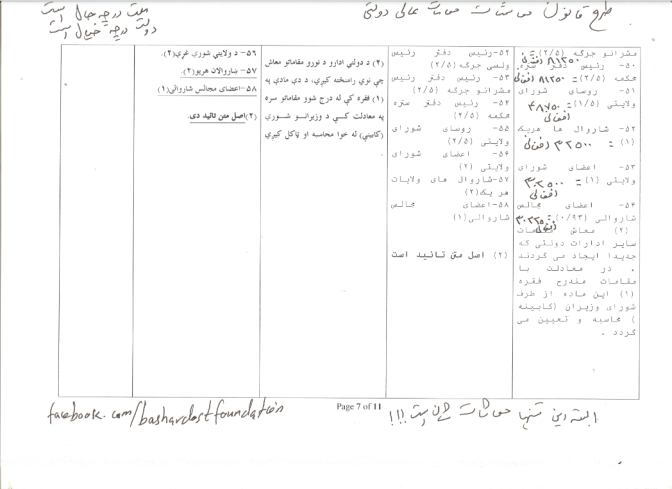 طرح قانون معاشات مقامات عالی دولتی
ملت در چه حال است
دولت در چه خیال است
مشرانو جرگه (۲/۵) = ۸۱۲۵۰ افغانی
۵۰- رئیس دفتر ستره
محکمه (۲/۵) = ۸۱۲۵۰ افغانی
۵۱- روسای شورای
ولایتی (۱/۵) = ۴۸۷۵۰
افغانی
۵۲- شاروال ها هریک
(۱) = ۳۲۵۰۰ افغانی
۵۳- اعضای شورای
ولایتی (۱) = ۳۲۵۰۰
افغانی
۵۴- اعضای مجالس
شاروالی (۰/۹۳) = ۳۰۲۲۵
افغانی
(۲) معاش مقامات
سایر ادارات دولتی که
جدیدا ایجاد می گردند
، در معادلت با
مقامات مندرج فقره
(۱) این ماده از طرف
شورای وزیران (کابینه
) محاسبه و تعیین می
گردد .
۵۲-رئیس دفتر رئیس
ولسی جرگه (۲/۵)
۵۳- رئیس دفتر رئیس
مشرانو جرگه (۲/۵)
۵۴- رئیس دفتر ستره
محکمه (۲/۵)
۵۵- روسای شورای
ولایتی (۲/۵)
۵۶- اعضای شورای
ولایتی (۲)
۵۷-شاروال های ولایات
هر یک (۲)
۵۸-اعضای مجالس
شاروالی (۱)
(۲) اصل متن تائید است
(۲) د دولتي ادارو د نورو مقاماتو معاش
چې نوي رامنځته کیږي، د دې مادې په
(۱) فقره کې له درج شوو مقاماتو سره
په معادلت کې د وزیرانو شورې
(کابینې) له خوا محاسبه او ټاکل کیږي
.
۵۶- د ولایتي شورې غړي(۲).
۵۷- ښاروالان هریو(۲).
۵۸-اعضای مجالس شاروالی(۱)
(۲)اصل متن تائید دی.
Page 7 of 11
البته این تنها معاشات شان است!!!
facebook.com/bashardostfoundation